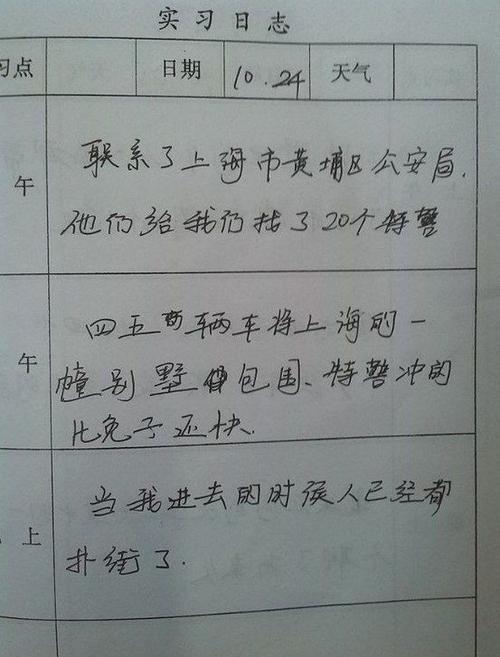 实习日志
习点 日期 10.24 天气
午
联系了上海市黄埔区公安局.
他们给我们找了20个特警
午
四五辆车将上海的一
幢别墅包围、特警冲的
比兔子还快.
上
当我进去的时侯人已经都
扑街了.